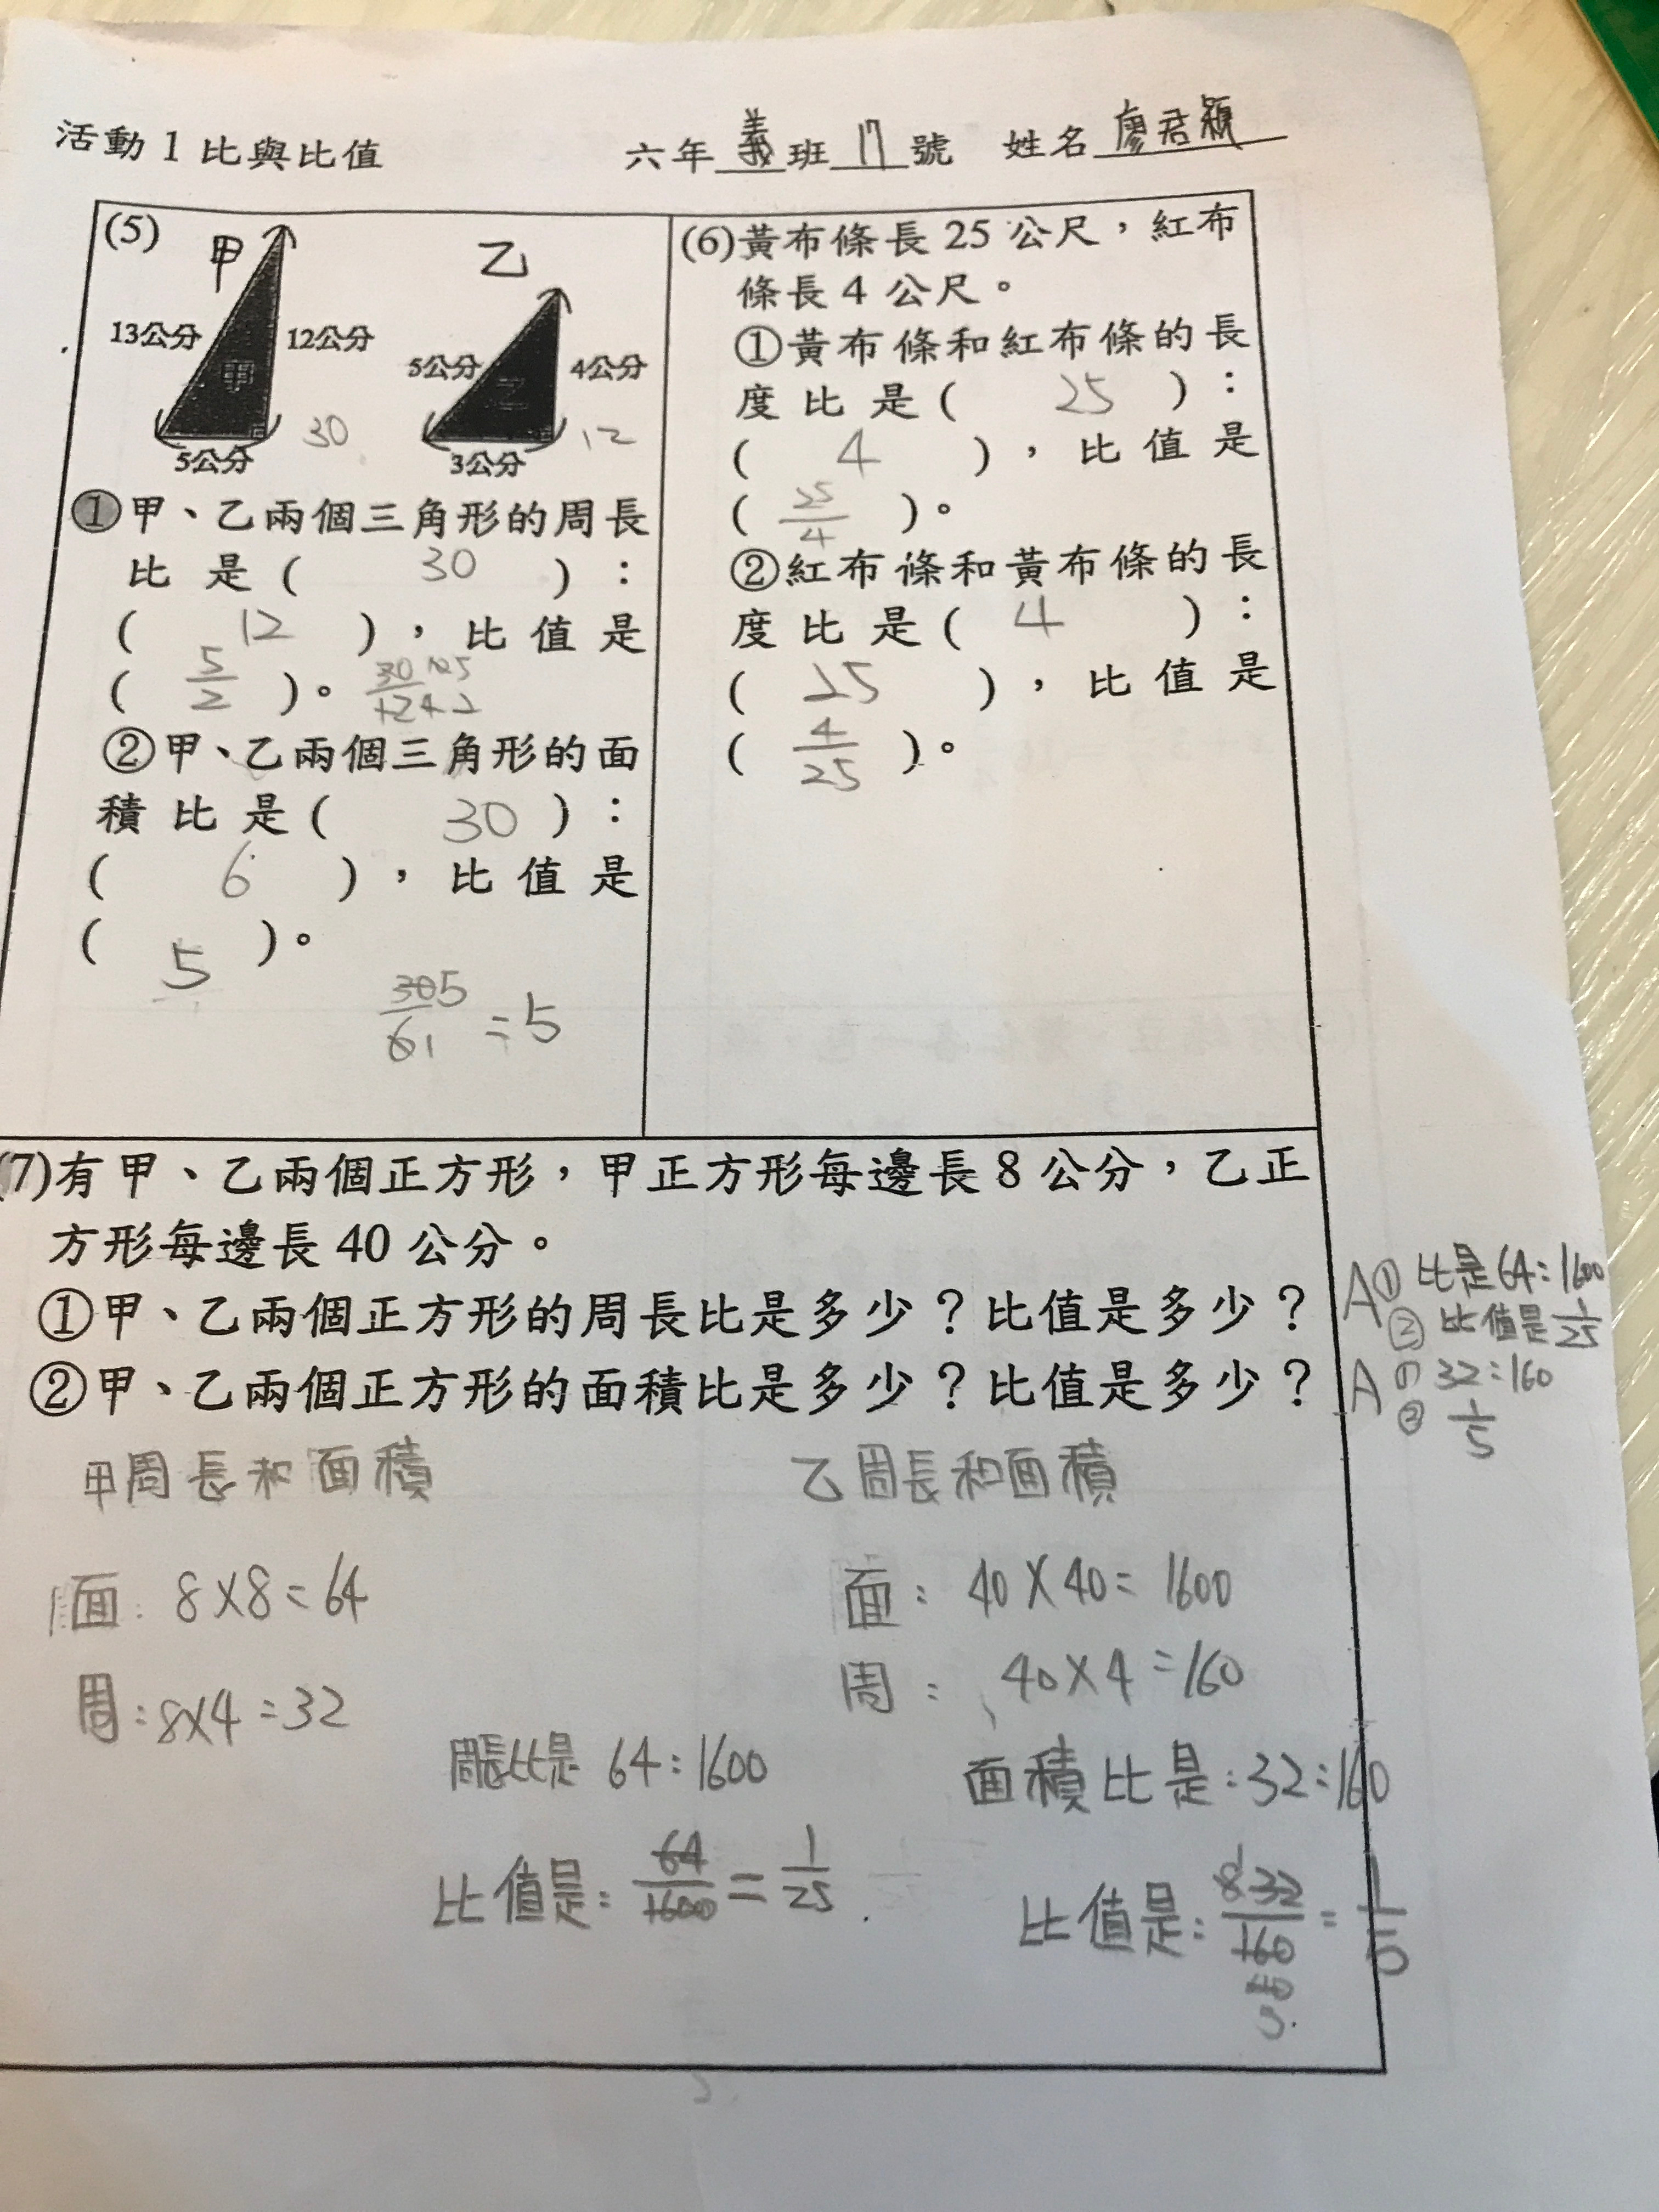 活動1 比與比值 六年義班17號 姓名廖君穎
(5)
甲 乙
13公分 12公分 甲 5公分 4公分 乙
5公分 30 3公分 12
①甲、乙兩個三角形的周長
比是( 30 ):
( 12 ),比值是
( 5/2 )。 30/12 5/2
②甲、乙兩個三角形的面
積比是( 30 ):
( 6 ),比值是
( 5 )。
30/6 5/1 =5
(6)黃布條長25公尺,紅布
條長4公尺。
①黃布條和紅布條的長
度比是( 25 ):
( 4 ),比值是
( 25/4 )。
②紅布條和黃布條的長
度比是( 4 ):
( 25 ),比值是
( 4/25 )。
(7)有甲、乙兩個正方形,甲正方形每邊長8公分,乙正
方形每邊長40公分。
①甲、乙兩個正方形的周長比是多少?比值是多少?
②甲、乙兩個正方形的面積比是多少?比值是多少?
A① 比是64:1600
② 比值是1/25
A① 32:160
② 1/5
甲周長和面積
面:8×8=64
周:8×4=32
乙周長和面積
面:40×40=1600
周:40×4=160
周長比是 64:1600
比值是:64/1600=1/25
面積比是:32:160
比值是:32/160=1/5